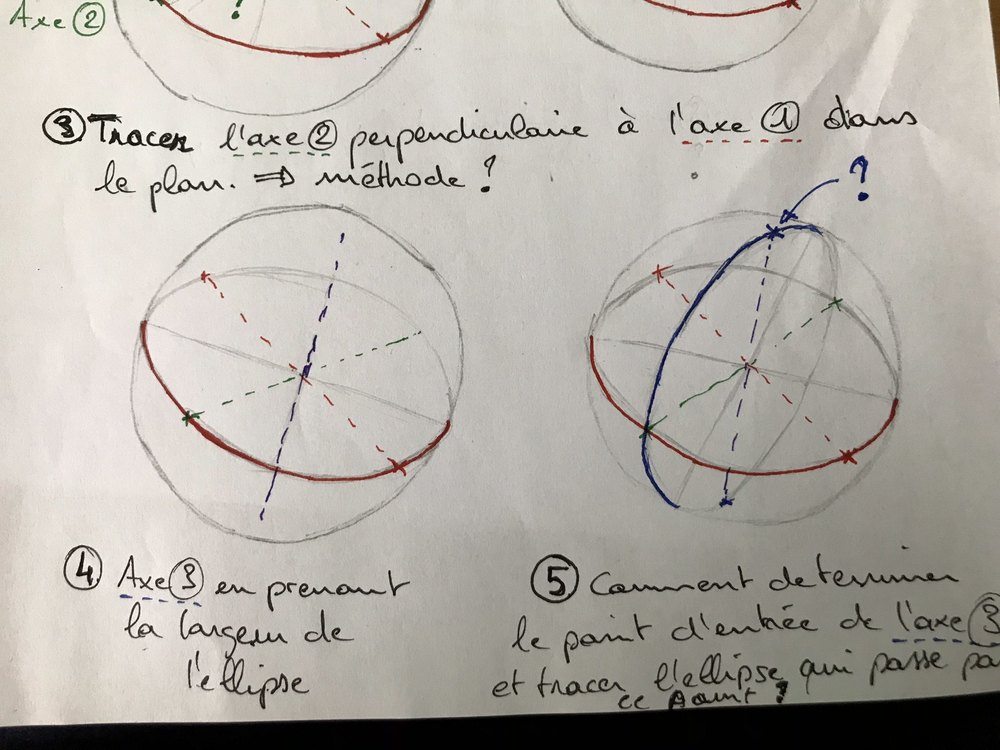 Axe ②
?
③ Tracer l'axe ② perpendiculaire à l'axe ① dans
le plan. ⇒ méthode ?
?
④ Axe ③ en prenant
la largeur de
l'ellipse
⑤ Comment determiner
le point d'entrée de l'axe ③
et tracer l'ellipse qui passe pa
ce point ?